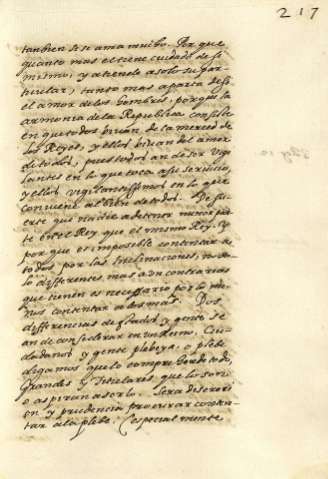 217
tanbien si se ama mucho. Por que
quanto mas el tiene cuidado de si
mismo, y atiende a solo su par-
ticular, tanto mas aparta de si
el amor de los hombres, porque la
armonia de la Republica consiste
en que todos viuan de la merced de
los Reyes, y ellos viuan del amor
de todos, pues todos an de ser vigi
lantes en lo que toca a su seruicio,
y ellos vigilantissimos en lo que
conuiene al bien de todos. De su
erte que nadie a de tener menor par
te en el Rey, que el mismo Rey. Y
por que es imposible contentar a
todos, por las inclinaciones, no so
lo differentes, mas aun contrarias
que tienen es necessario por lo me
nos contentar a los mas. Dos
differencias de estados y gente se
an de considerar en un Reino, Ciu
dadanos, y gente plebeya, o plebe
digamos que lo comprehende todo,
Grandes y Titulares, que lo son
o aspiran a serlo. Sera de seruici
o y prudencia procurar conten
tar a la plebe. Especialmente